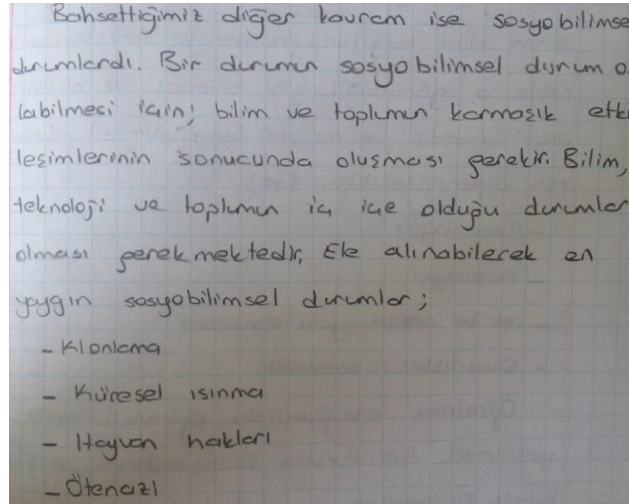 Bahsettiğimiz diğer kavram ise sosyobilimse
durumlardı. Bir durumun sosyobilimsel durum o
labilmesi için; bilim ve toplumun karmaşık etki
leşimlerinin sonucunda oluşması gerekir. Bilim,
teknoloji ve toplumun iç içe olduğu durumlar
olması gerekmektedir, Ele alınabilecek en
yaygın sosyobilimsel durumlar;
- Klonlama
- Küresel ısınma
- Hayvan hakları
- Ötenazi